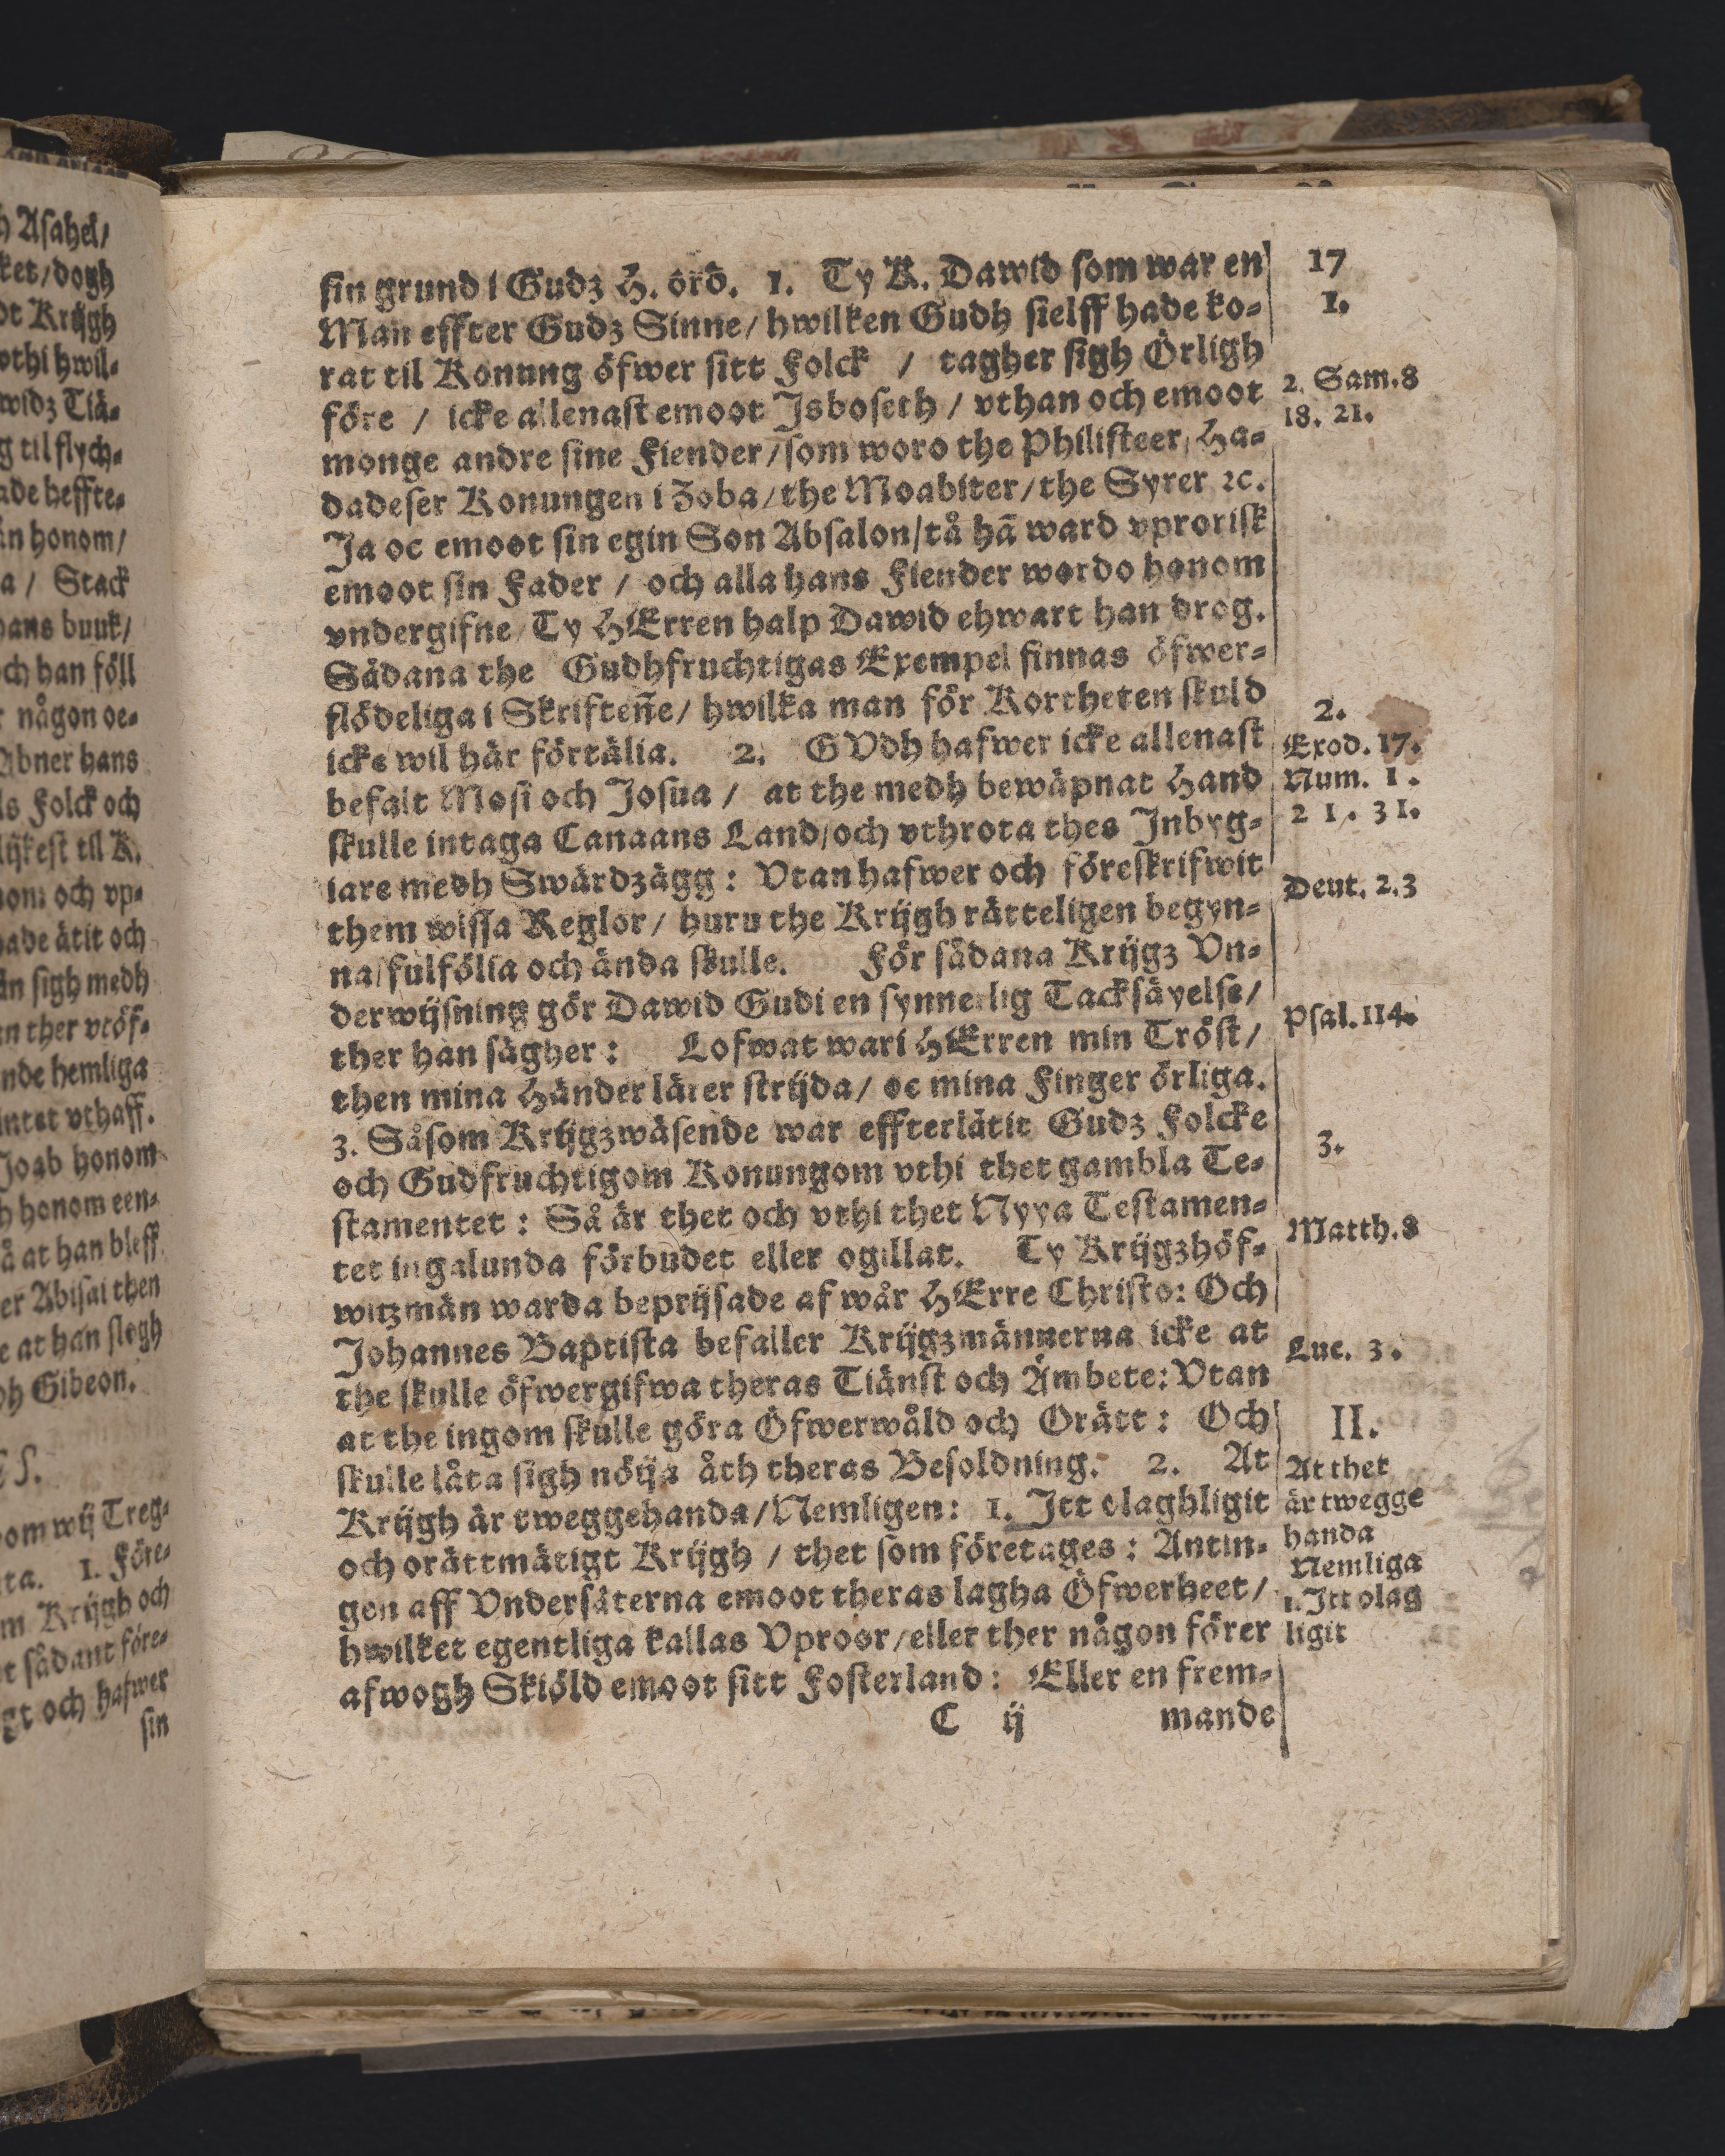 sin grund i Gudz H. ord. 1. Ty K. Dawid som war en
Man effter Gudz Sinne/ hwilken Gudh sielff hade ko-
rat til Konung öfwer sitt Folck / tagher sigh Örligh
före / icke allenast emoot Isboseth / vthan och emoot
monge andre sine Fiender/som woro the Philisteer, Ha-
dadeser Konungen i Zoba/the Moabiter/the Syrer ꝛc.
Ja oc emoot sin egin Son Absalon/tå hā ward vprorisk
emoot sin Fader / och alla hans Fiender wordo honom
vndergifne/ Ty HErren halp Dawid ehwart han drog.
Sådana the Gudhfruchtigas Exempel finnas öfwer-
flödeliga i Skrifteñe/ hwilka man för Kortheten skuld
icke wil här förtälia. 2. GVdh hafwer icke allenast
befalt Mosi och Josua / at the medh bewäpnat Hand
skulle intaga Canaans Land/och vthrota thes Inbyg-
iare medh Swärdzägg: Vtan hafwer och föreskrifwit
them wissa Reglor/ huru the Krijgh rätteligen begyn-
na/fulfölia och ända skulle. För sådana Krijgz Vn-
derwijsning gör Dawid Gudi en synnerlig Tacksäyelse/
ther han sägher: Lofwat wari HErren min Tröst/
then mina Händer lärer strijda/ oc mina Finger örliga.
3. Såsom Krijgzwäsende war effterlåtit Gudz Folcke
och Gudfruchtigom Konungom vthi thet gambla Te-
stamentet: Så är thet och vthi thet Nyya Testamen-
tet ingalunda förbudet eller ogillat. Ty Krijgzhöf-
witzmän warda beprijsade af wår HErre Christo: Och
Johannes Baptista befaller Krijgzmännerna icke at
the skulle öfwergifwa theras Tiänst och Ämbete: Vtan
at the ingom skulle göra Öfwerwåld och Orätt: Och
skulle låta sigh nöija åth theras Besoldning. 2. At
Krijgh är tweggehanda/Nemligen: 1. Itt olaghligit
och orättmätigt Krijgh / thet som företages: Antin-
gen aff Vndersåterna emoot theras lagha Öfwerheet/
hwilket egentliga kallas Vproor/eller ther någon förer
afwogh Skiöld emoot sitt Fosterland: Eller en frem-
C ij mande
17
1.
2. Sam.8
18. 21.
2.
Exod. 17.
Num. 1.
21. 31.
Deut. 2.3
Psal.114.
3.
Matth.8
Luc. 3.
II.
At thet
är twegge
handa
Nemliga
1.Itt olag
ligit